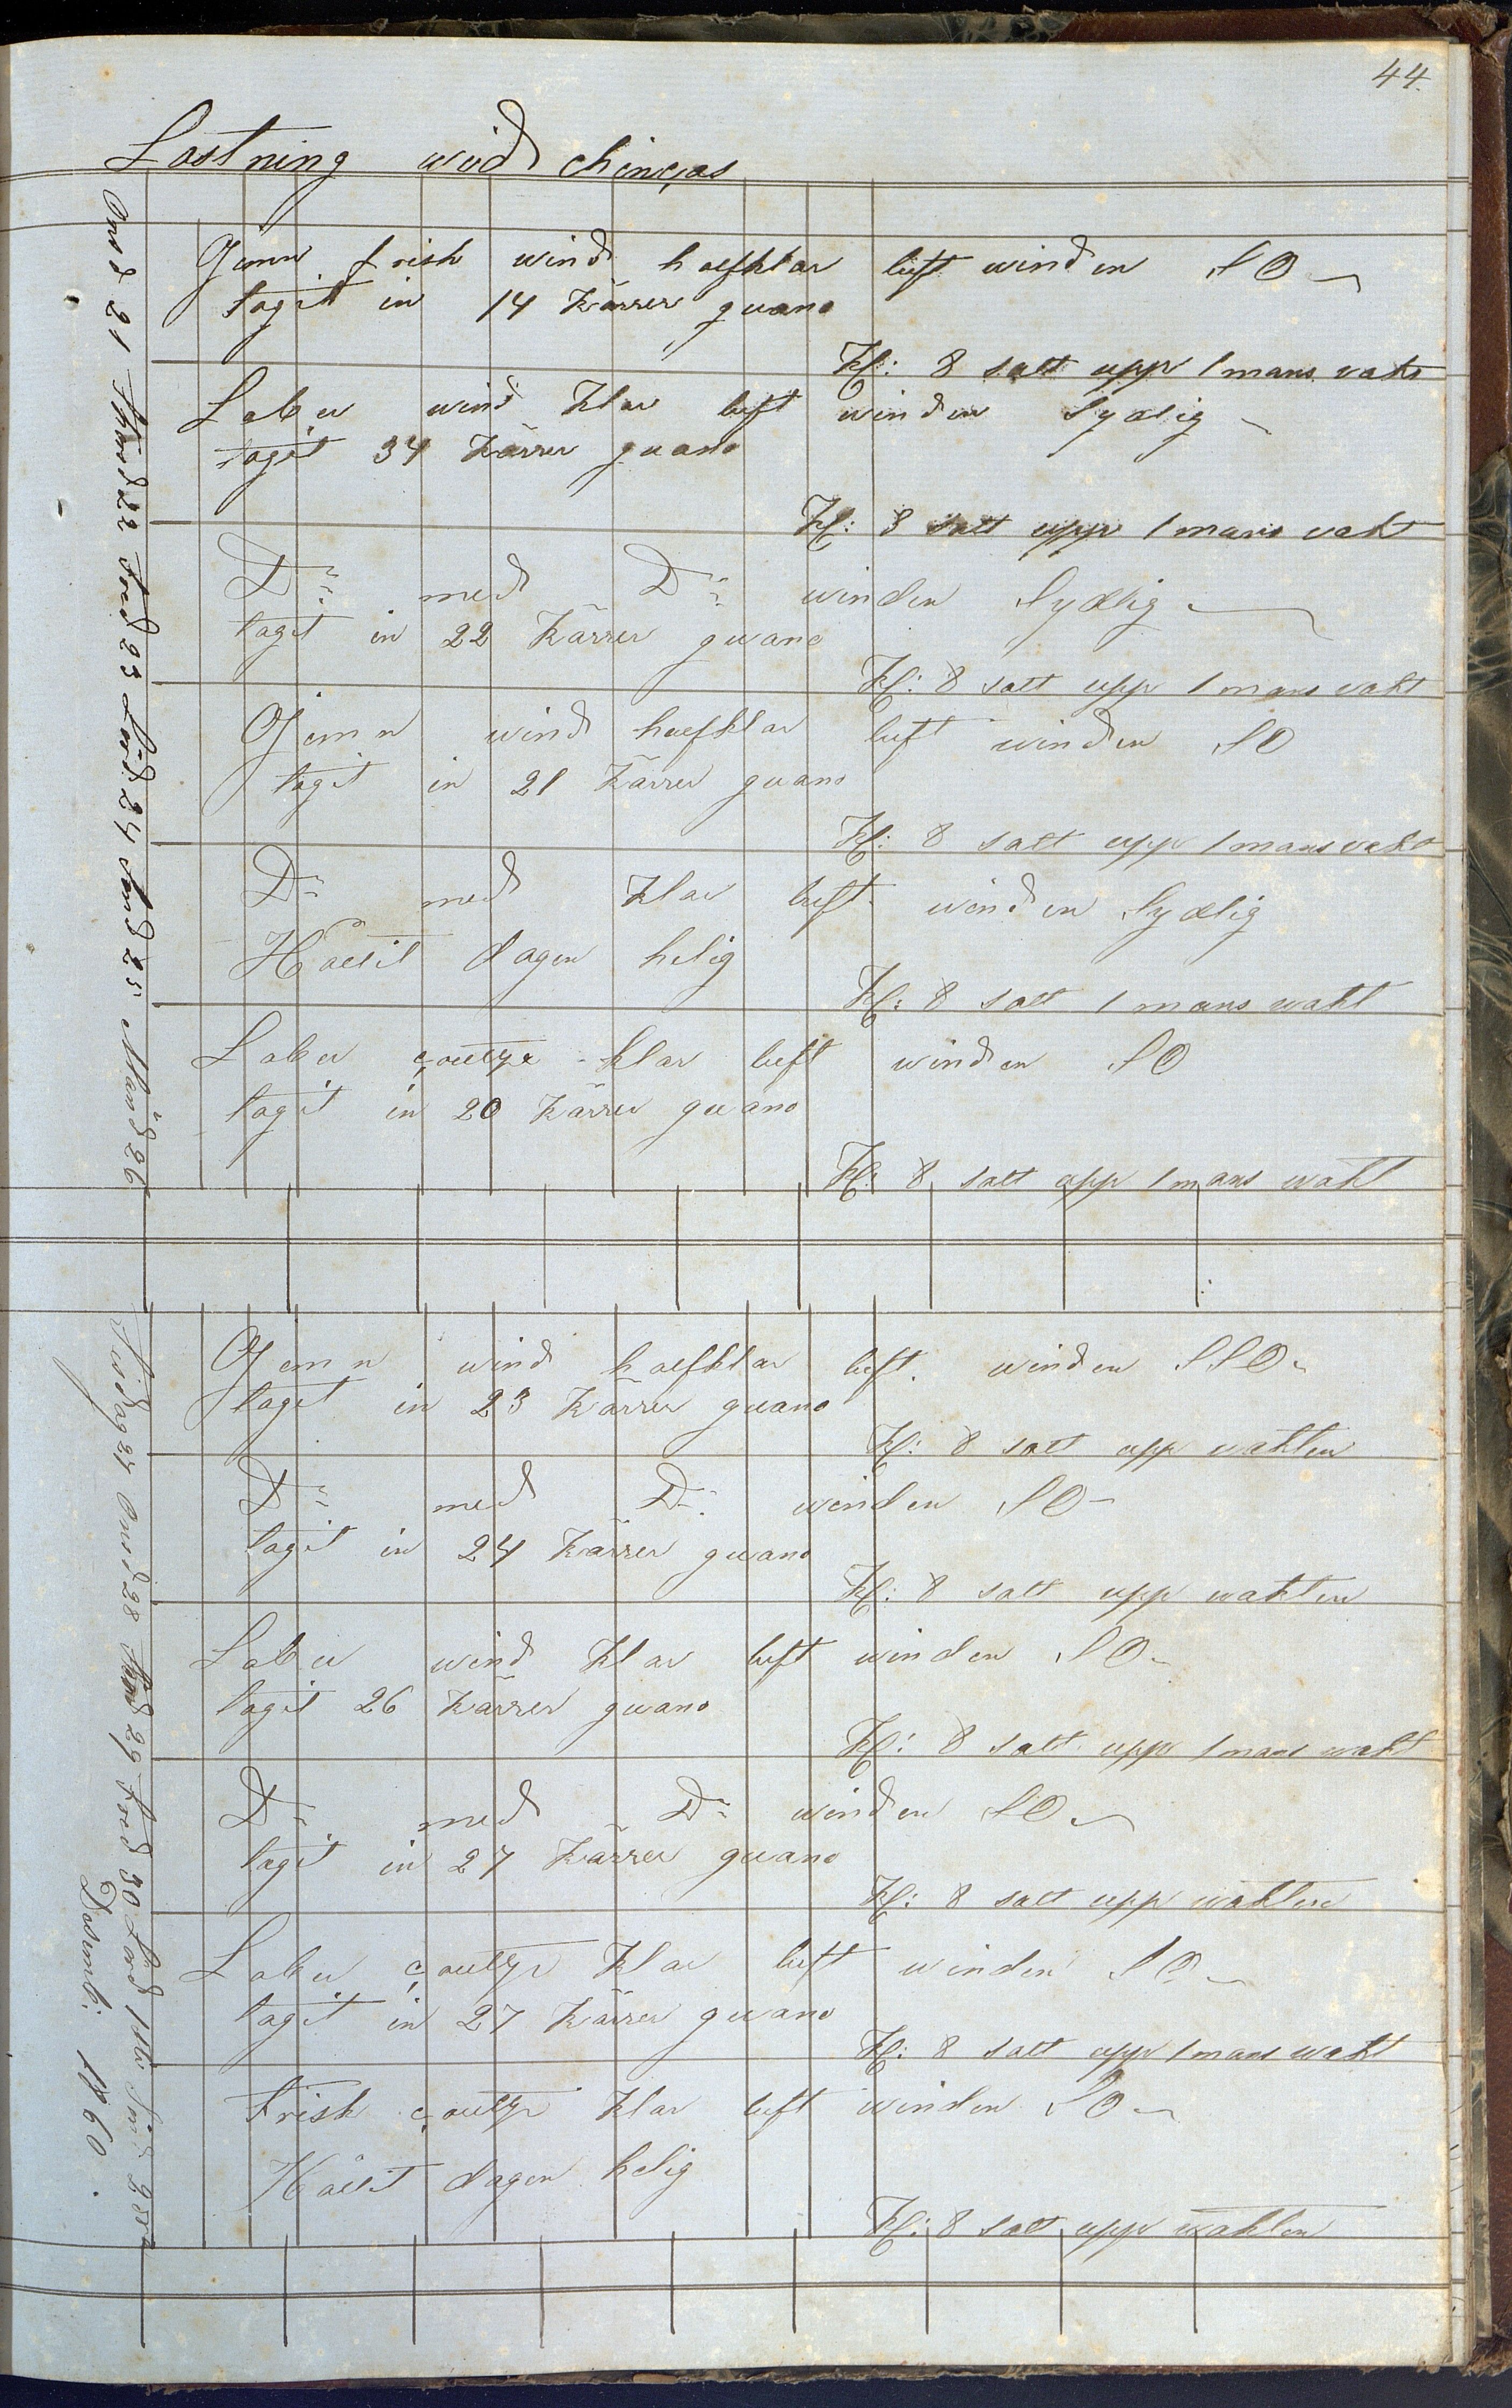 44.
Lastning wid chinças
Onsd 21 Thorsd 22 Fred 23 Lörd 24 Sönd 25 Månd 26
Jemn frisk wind halfklar luft winden SO
tagit in 14 Kärrer guano
Kl: 8 satt upp 1 mans vakt
Laber wind Klar luft winden Sydlig
tagit 34 Kärrer guano
Kl: 8 satt upp 1 mans vakt
Do med Do winden Sydlig
tagit in 22 Kärrer guano
Kl: 8 satt upp 1 mans vakt
Jemn wind halfklar luft winden SO
tagit in 21 Kärrer guano
Kl: 8 satt upp 1 mans vakt
Do med Klar luft winden Sydlig
Hållit dagen helig
Kl: 8 satt 1 mans wakt
Laber coultje klar luft winden SO
tagit in 20 Kärrer guano
Kl: 8 satt upp 1 mans wakt
Tisdag 27 Onsd 28 Thorsd 29 Fred 30 Lörd 1sta Sönd 2dra
Desemb: 1860.
Jemn wind halfklar luft. winden SSO
tagit in 23 Kärrer guano
Kl: 8 satt upp wakten
Do med Do winden SO
tagit in 24 Kärrer guano
Kl: 8 satt upp wakten
Laber wind Klar luft winden SO
tagit 26 Kärrer guano
Kl: 8 satt upp 1 mans wakt
Do med Do winden SO
tagit in 27 Kärrer guano
Kl: 8 satt upp wakten
Laber coultje Klar luft winden SO
tagit in 27 Kärrer guano
Kl: 8 satt upp 1 mans wakt
Frisk coultje Klar luft winden SO
Hållit dagen helig
Kl: 8 satt upp wakten